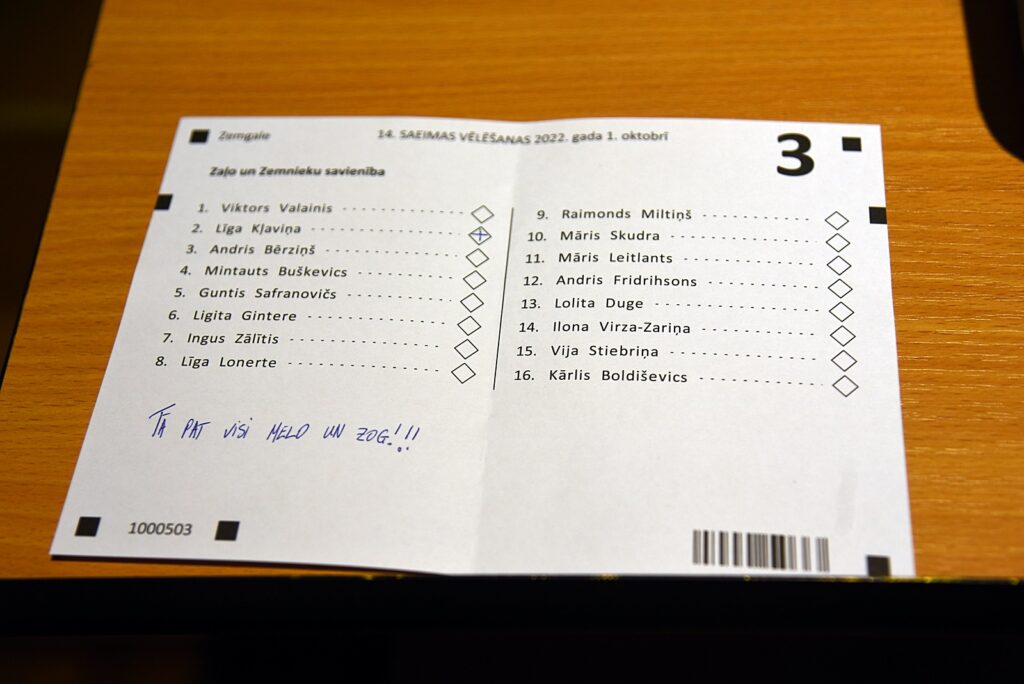 Zemgale
14. SAEIMAS VĒLĒŠANAS 2022. gada 1. oktobrī
3
Zaļo un Zemnieku savienība
1. Viktors Valainis
2. Līga Kļaviņa
3. Andris Bērziņš
4. Mintauts Buškevics
5. Guntis Safranovičs
6. Ligita Gintere
7. Ingus Zālītis
8. Līga Lonerte
9. Raimonds Miltiņš
10. Māris Skudra
11. Māris Leitlants
12. Andris Fridrihsons
13. Lolita Duge
14. Ilona Virza-Zariņa
15. Vija Stiebriņa
16. Kārlis Boldiševics
TĀ PAT VISI MELO UN ZOG!!!
1000503